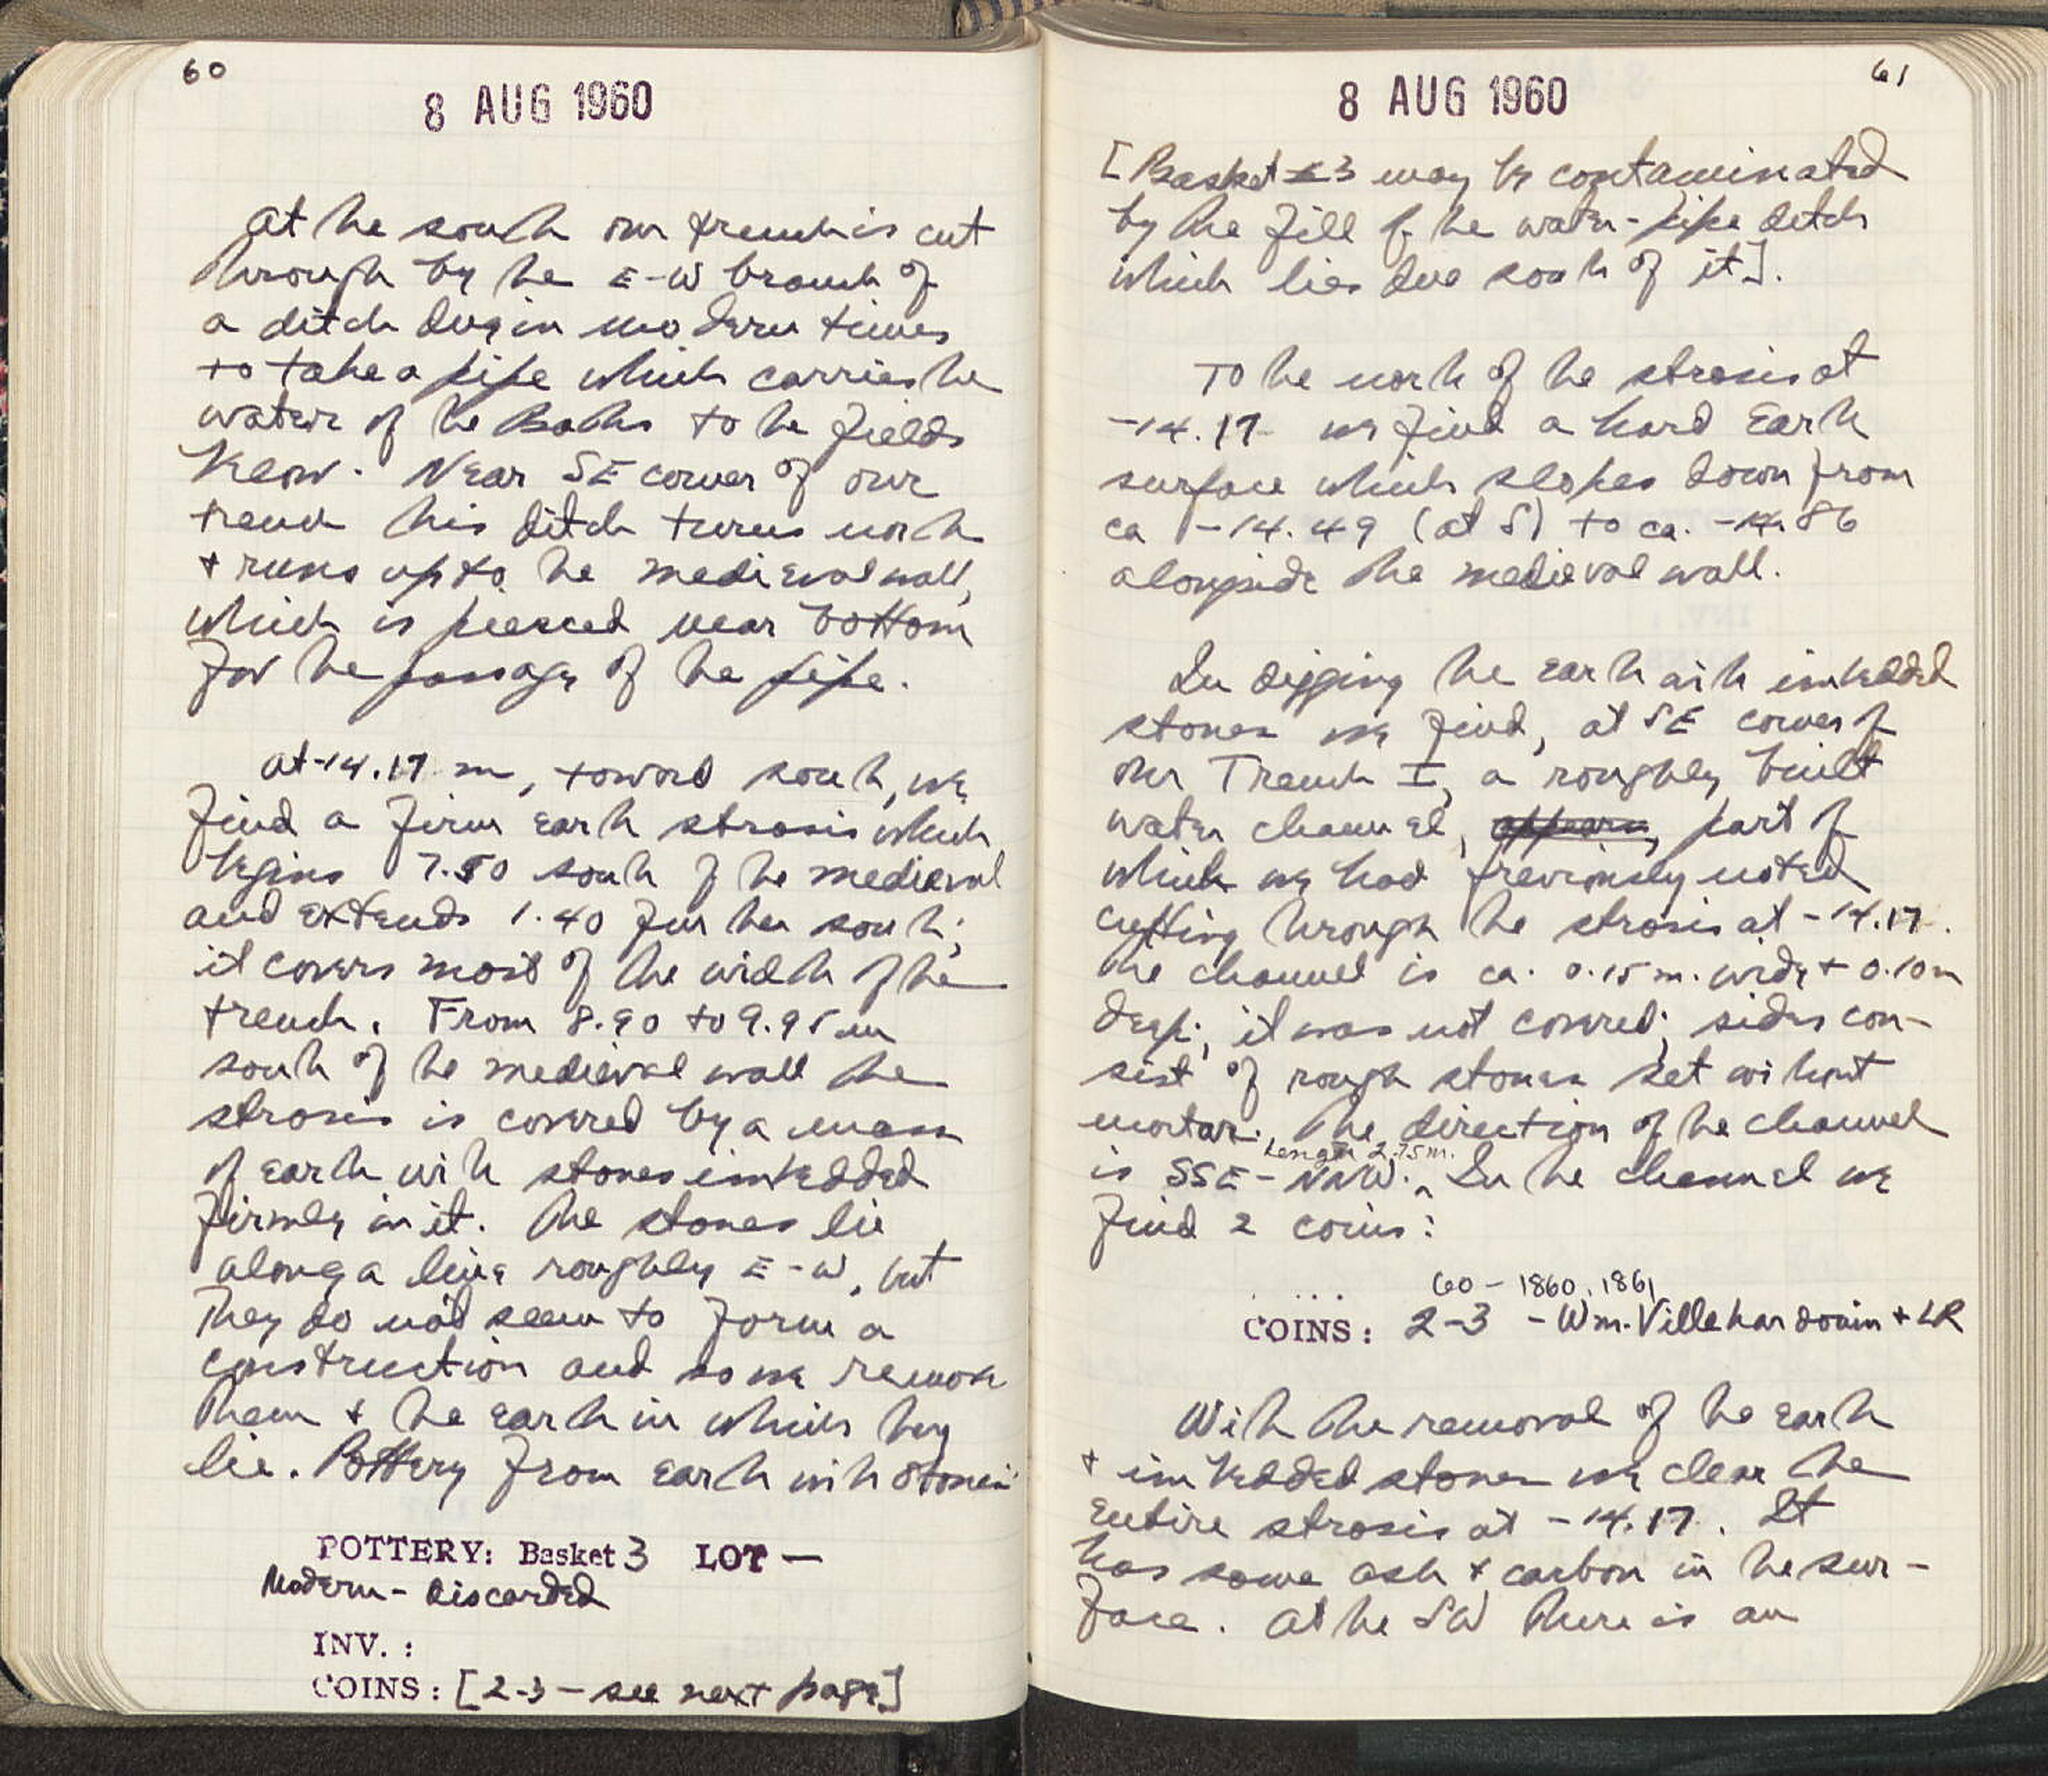 60
8 AUG 1960
At the south our trench is cut
through by the E-W branch of
a ditch dug in modern times
to take a pipe which carries the
water of the Baths to the fields
below. Near SE corner of our
trench this ditch turns north
+ runs up to the medieval wall,
which is pierced near bottom
for the passage of the pipe.
At -14.17 m, toward south, we
find a firm earth strosis which
begins 7.50 south of the medieval
and extends 1.40 further south;
it covers most of the width of the
trench. From 8.90 to 9.95 m
south of the medieval wall the
strosis is covered by a mass
of earth with stones imbedded
firmly in it. The stones lie
along a line roughly E-W, but
they do not seem to form a
construction and so we remove
them + the earth in which they
lie. Pottery from earth with stones:
POTTERY: Basket 3 LOT —
Modern - Discarded
INV. :
COINS: [2-3 — see next page]
61
8 AUG 1960
[Basket 3 may be contaminated
by the fill of the water-pipe ditch
which lies due south of it].
To the north of the strosis at
-14.17 we find a hard earth
surface which slopes down from
ca -14.49 (at S) to ca. -14.86
alongside the medieval wall.
In digging the earth with imbedded
stones we find, at SE corner of
our Trench I, a roughly built
water channel, appears, part of
which we had previously noted
cutting through the strosis at -14.17.
The channel is ca. 0.15 m. wide + 0.10 m
deep; it was not covered; sides con-
sist of rough stones set without
mortar. The direction of the channel
Length 2.75 m.
is SSE - NNW. In the channel we
find 2 coins:
60 - 1860, 1861
COINS: 2-3 - Wm. Villehardouin + LR
With the removal of the earth
+ imbedded stones we clear the
entire strosis at -14.17. It
has some ash + carbon in the sur-
face. At the SW there is an